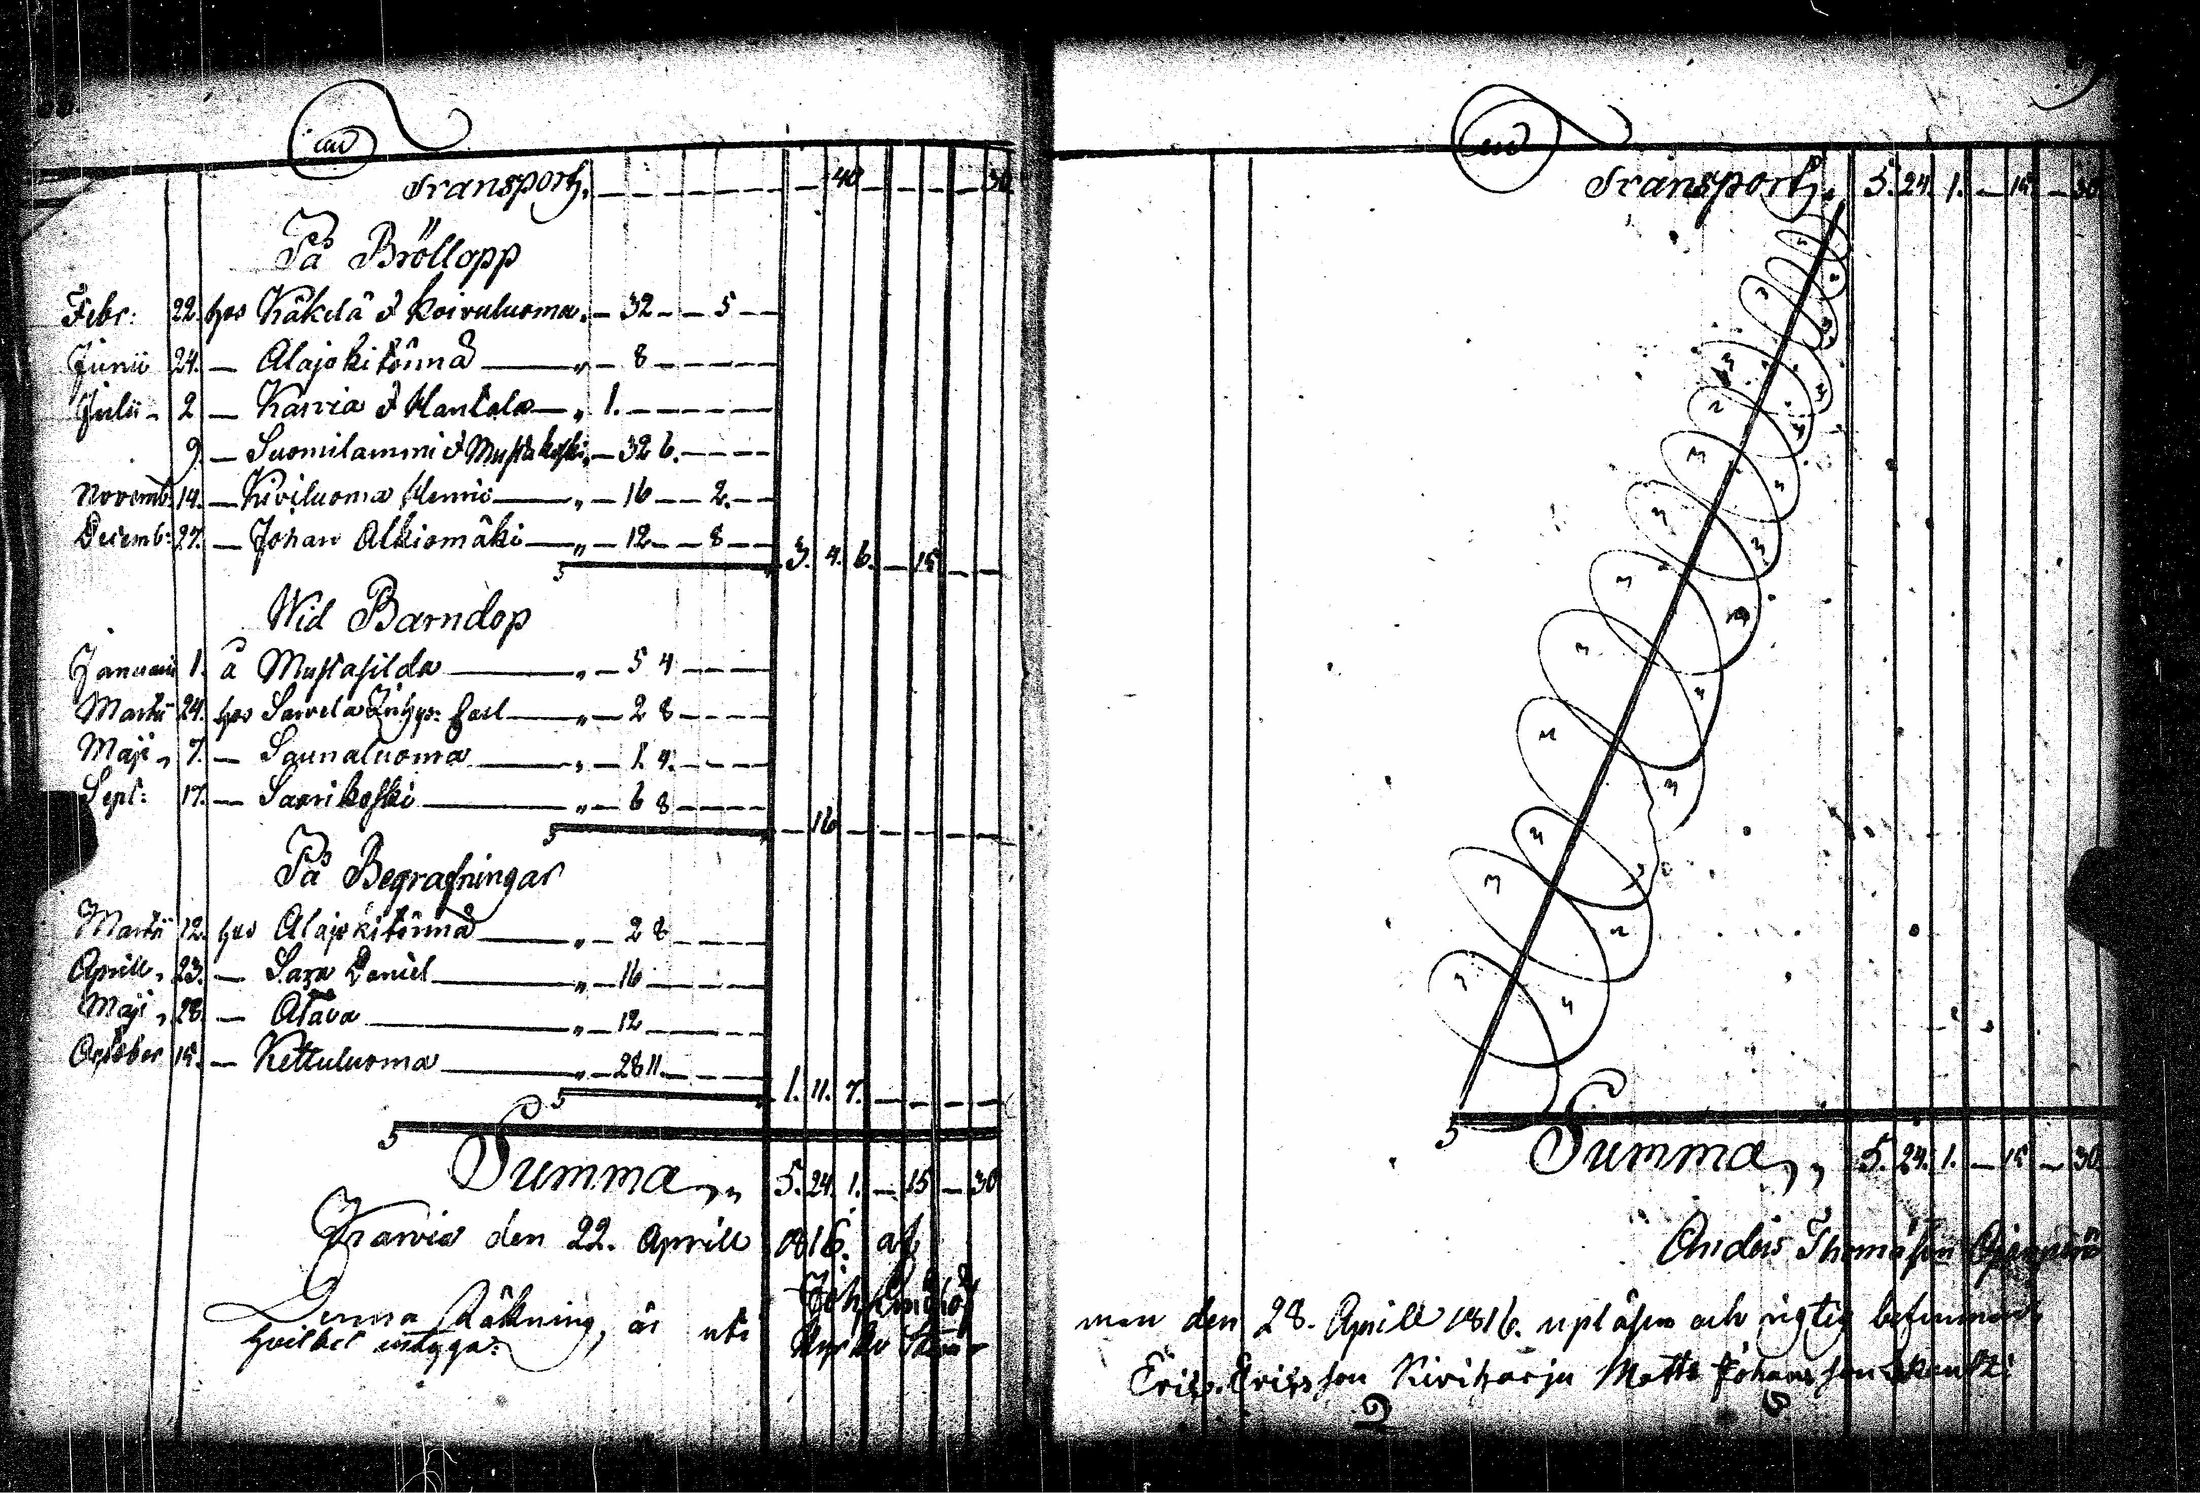 Transport. — — — — — — 40 — — — — 30
På Bröllopp
Febr: 22. hos Käkelä & Koivuluoma. — 32 — — 5 — —
Junii 24. — Alajokitönnä — „ — 8 — — — —
Julii — 2 — Karvia & Mantala — „ 1. — — — — —
9. — Suomilammi & Mustakoski „ — 32 6. — — — —
Novemb: 14. — Kiviluoma Henric — „ — 16 — — 2. — —
Decemb: 27. — Johan Alkiomäki — „ — 12 — — 8 — —
3. 4. 6. — 15 — —
Wid Barndop
Januarii 1. å Mustasilda — „ — 5 4 — — —
Martii 24. hos Sarvela — „ — 2 8 — — —
Maji „ 7. — Saunaluoma — „ — 1. 4. — — —
Sept: 17. — Saarikoski — „ — 6 8 — — —
— 16 — — — — —
På Begrafningar
Martii 12. hos Alajokitönnä — „ — 2 8 — — —
Aprill „ 23. — Sara Daniel — „ — 16 — — — —
Maji „ 28. — Atava — „ — 12 — — — —
October 15. — Kettuluoma — „ — 28 11. — — —
1. 11. 7. — — — —
Summa „ „ 5. 24. 1. — 15 — 30
Karvia den 22. Aprill 1816. af
Joh
Denna Räkning, är uti Kyrko
hvilket intyga:
Transport. 5. 24. 1. — 15 — 30
Summa „ „ 5. 24. 1. — 15 — 30
Anders Thomasson
man den 28. Aprill 1816. upläsen och rigtig befunnen,
Eric Ericsson Kiviharju Matts Johansson